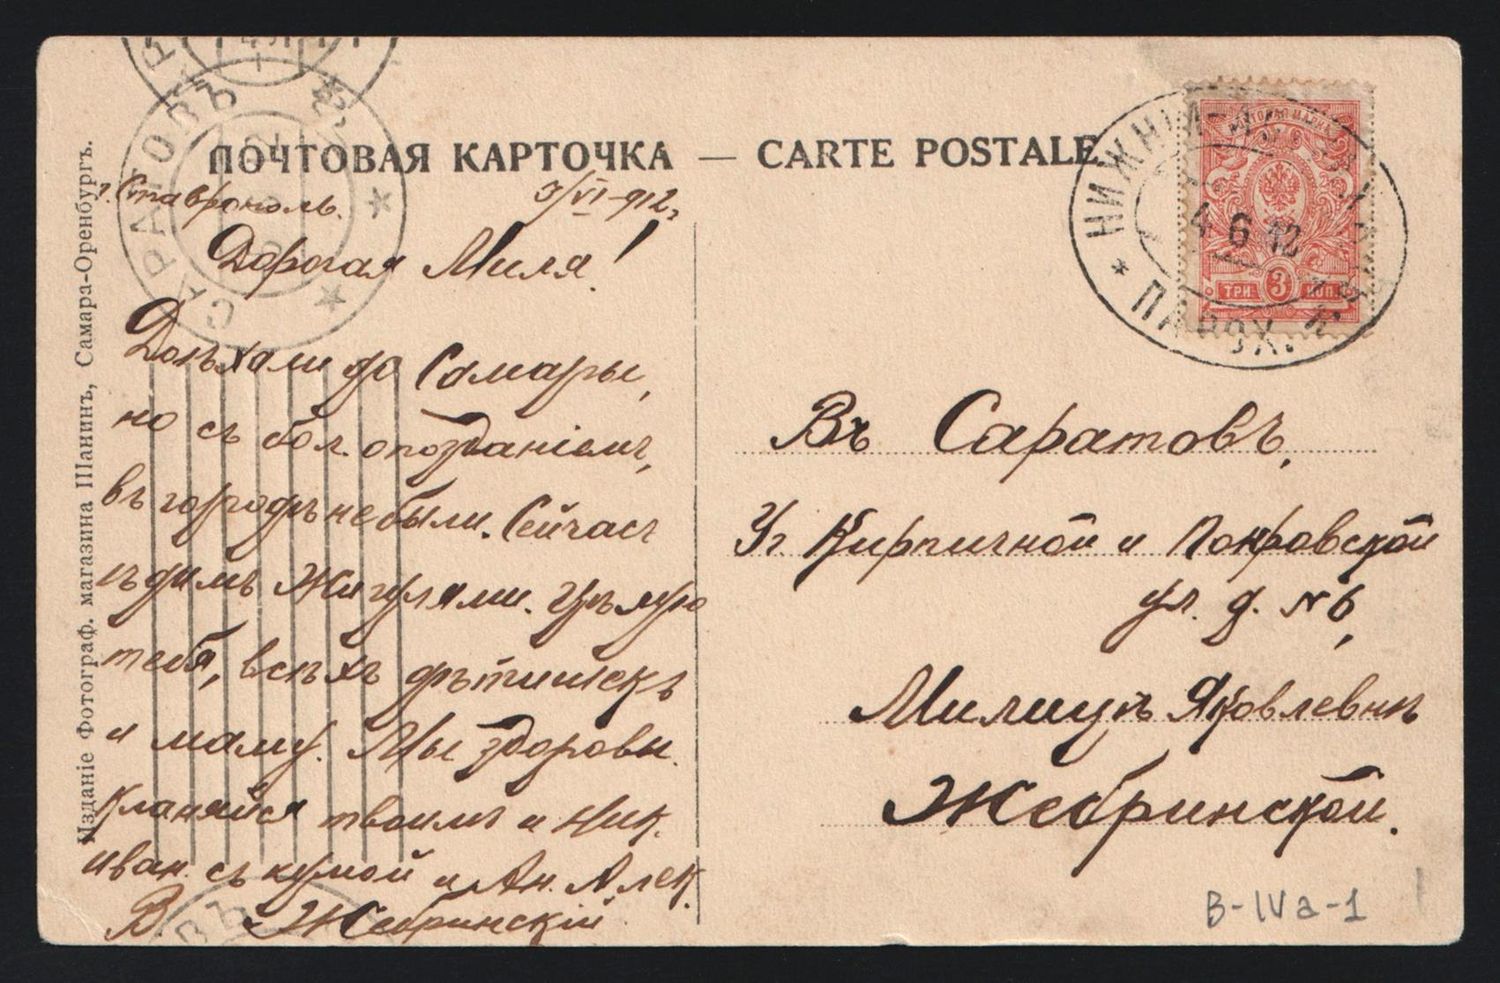 ПОЧТОВАЯ КАРТОЧКА — CARTE POSTALE
г. Ставрополь. 3/VI-912 г.
Дорогая Миля!
Доѣхали до Самары,
но съ бол. опозданіемъ,
въ городѣ не были. Сейчасъ
ѣдимъ Жигулями. Цѣлую
тебя, всѣхъ дѣтишекъ
и маму. Мы здоровы.
Кланяйся твоимъ и Ник.
Иван. съ кумой и Ан. Алек.
В. Жебринскій
Въ Саратовъ,
Уг. Кирпичной и Покровской
ул. д. № 6,
Милицѣ Яковлевнѣ
Жебринской.
B-IVa-1
Изданіе Фотограф. магазина Шанинъ, Самара-Оренбургъ.
САРАТОВЪ
НИЖНІЙ
4 6 12
ПАРОХ.
ТРИ 3 КОП.